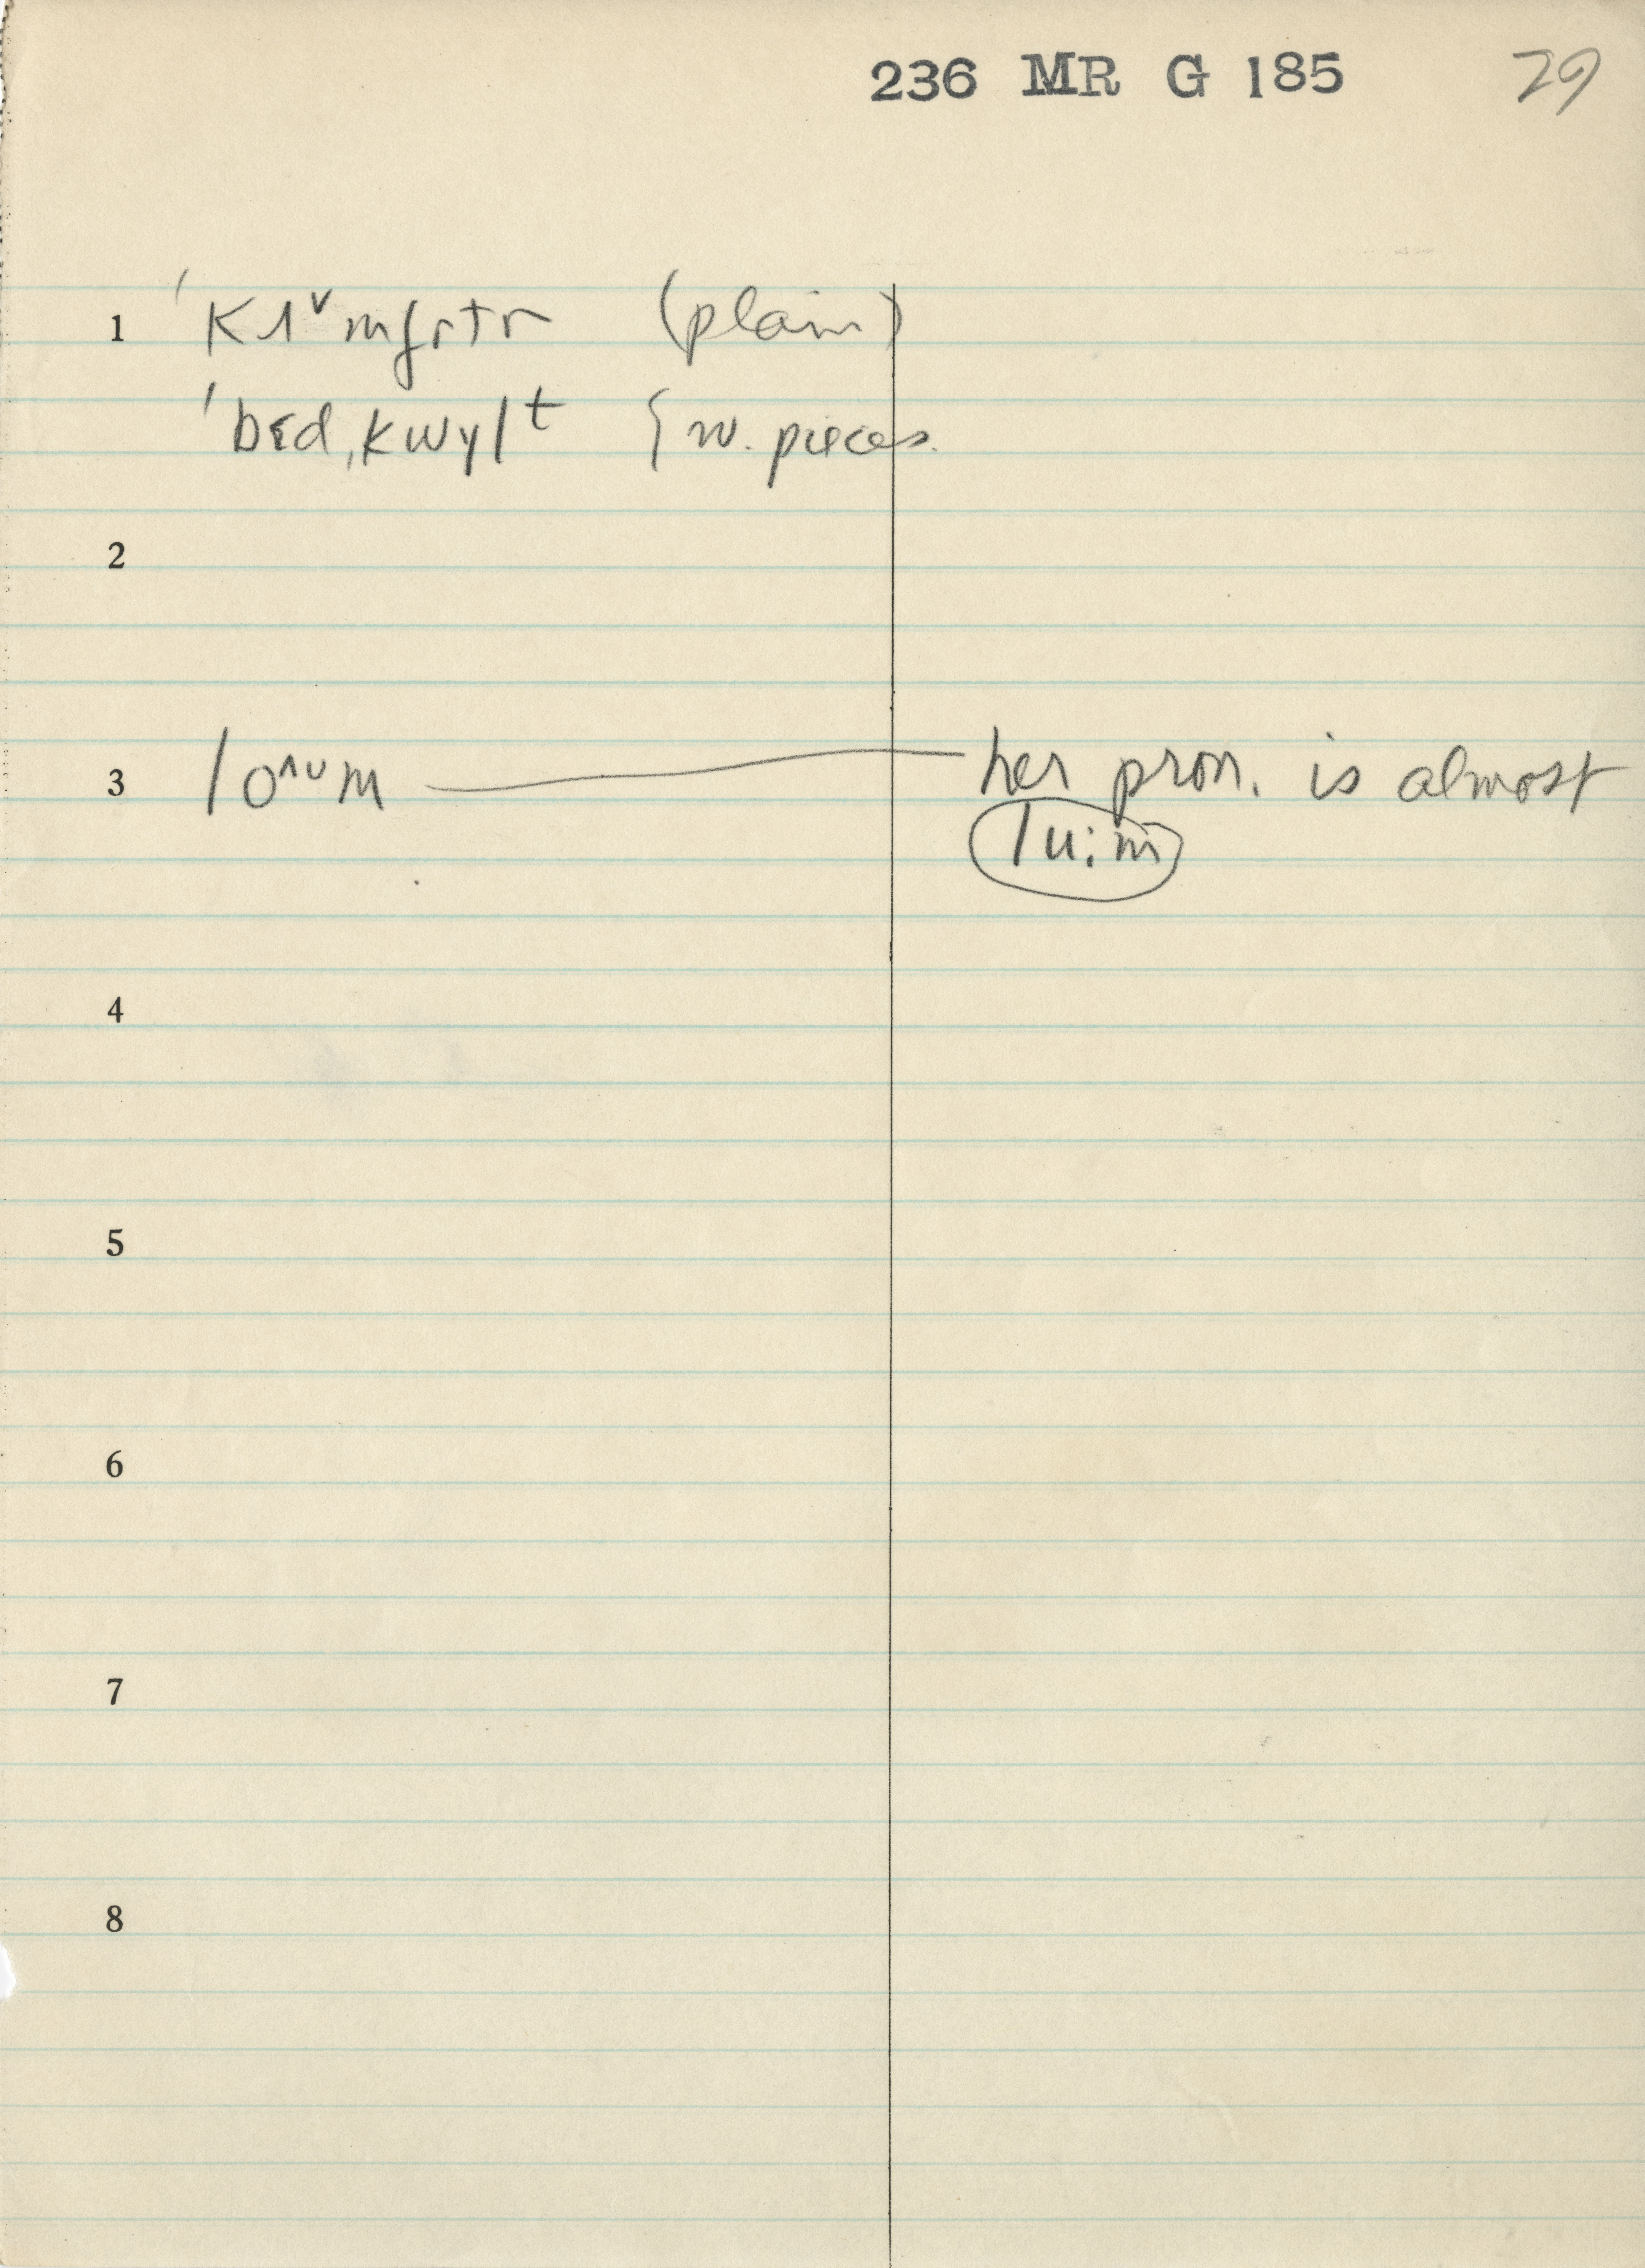 236 MR G 185 29
1 ˈkʌᵛmfɚtɚ (plain)
ˈbɛd,kwɪlᵗ { w. pieces.
2
3 loᴧᵘm — her pron. is almost
lu:m
4
5
6
7
8